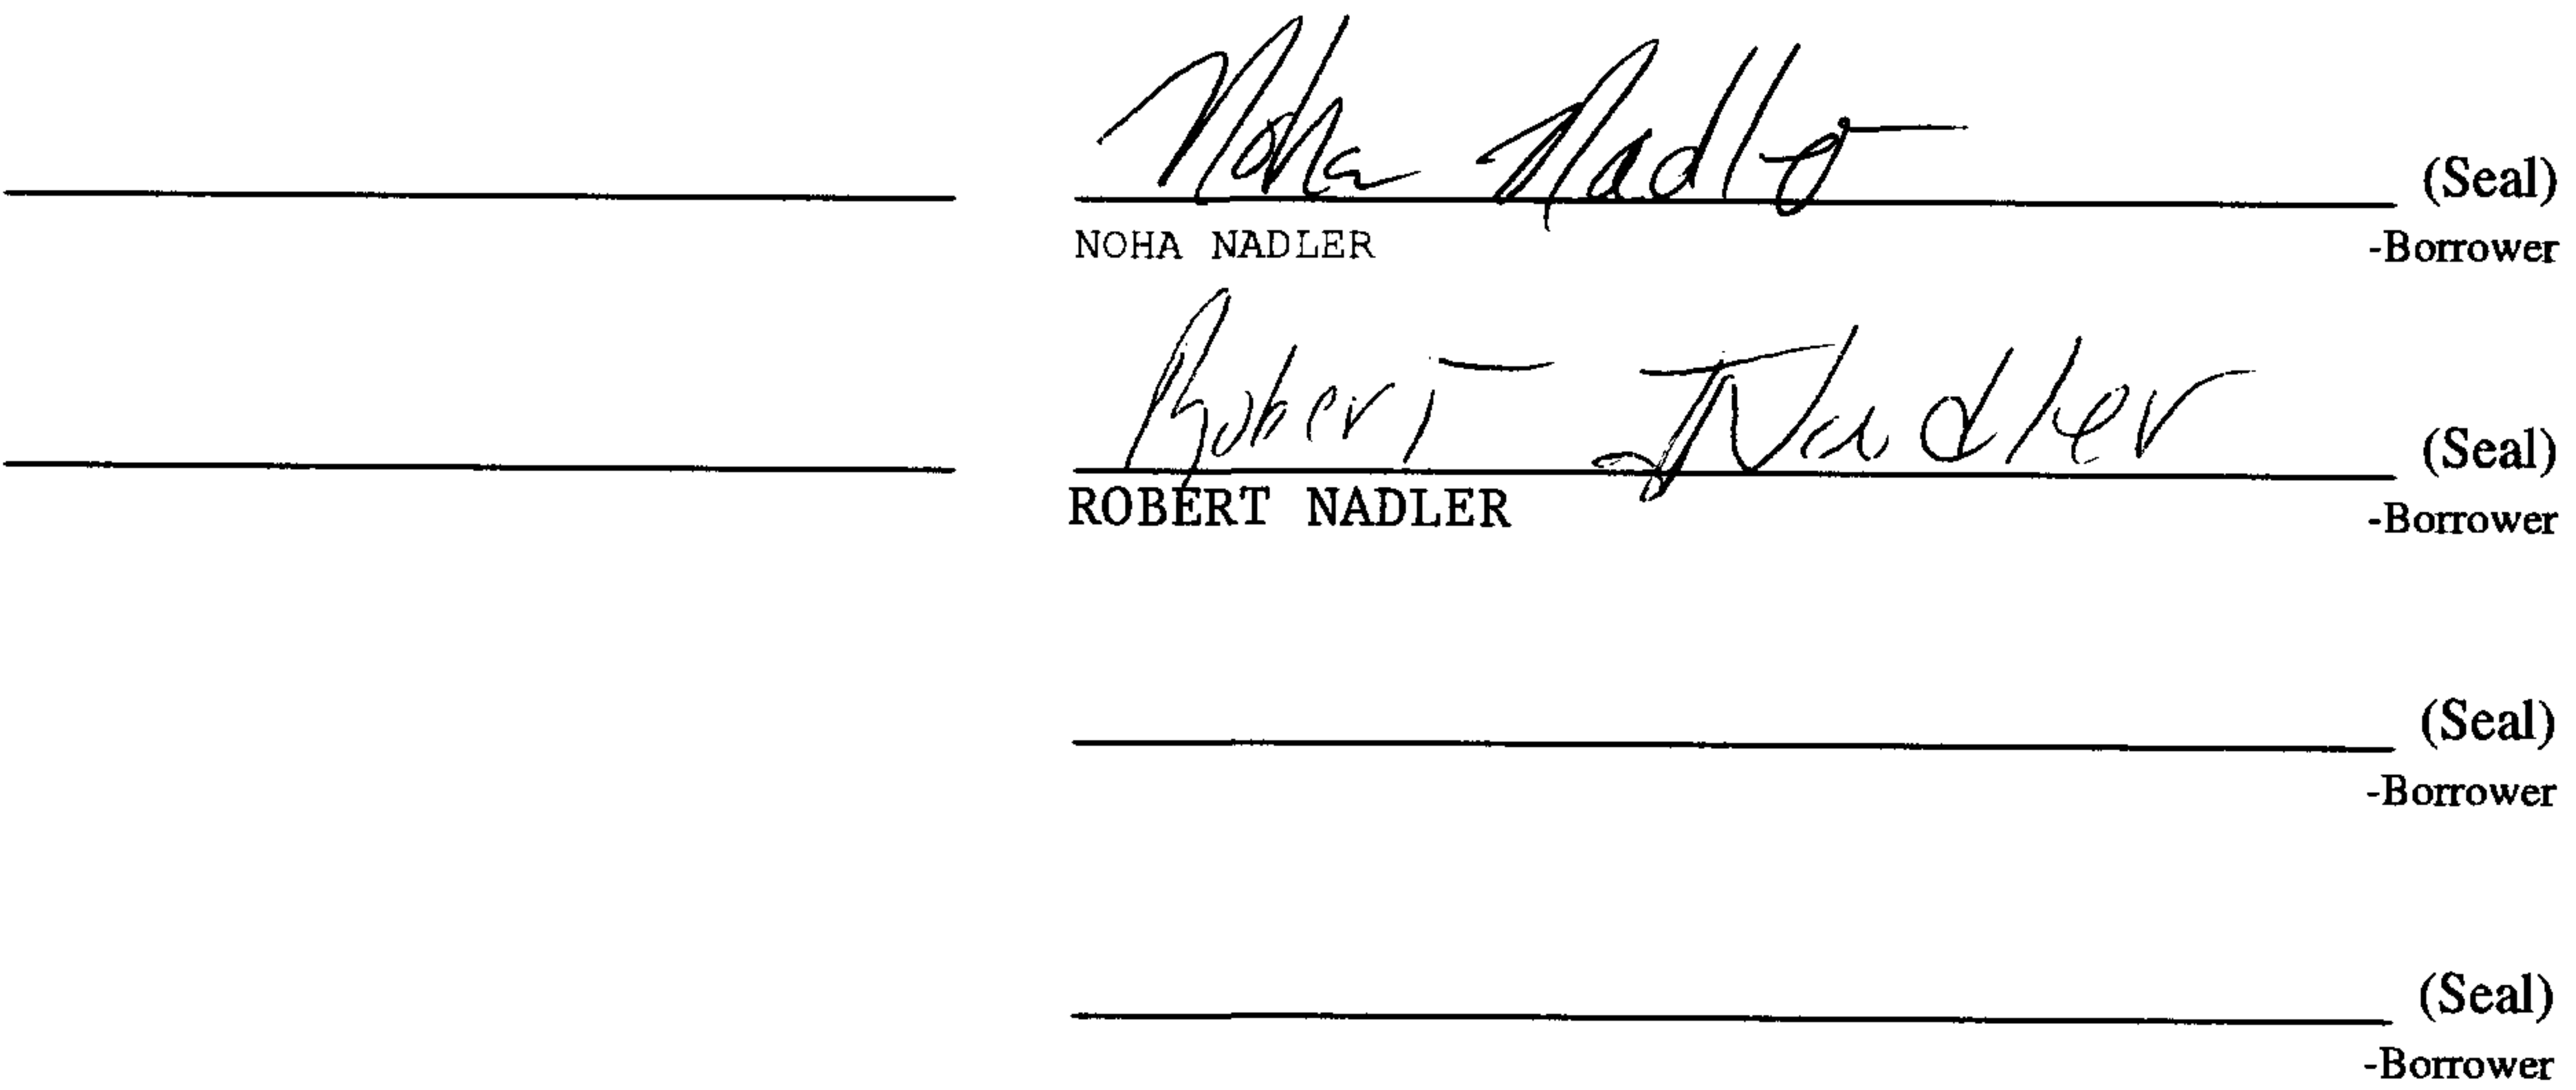 Noha Nadler (Seal)
NOHA NADLER -Borrower
Robert Nadler (Seal)
ROBERT NADLER -Borrower
(Seal)
-Borrower
(Seal)
-Borrower